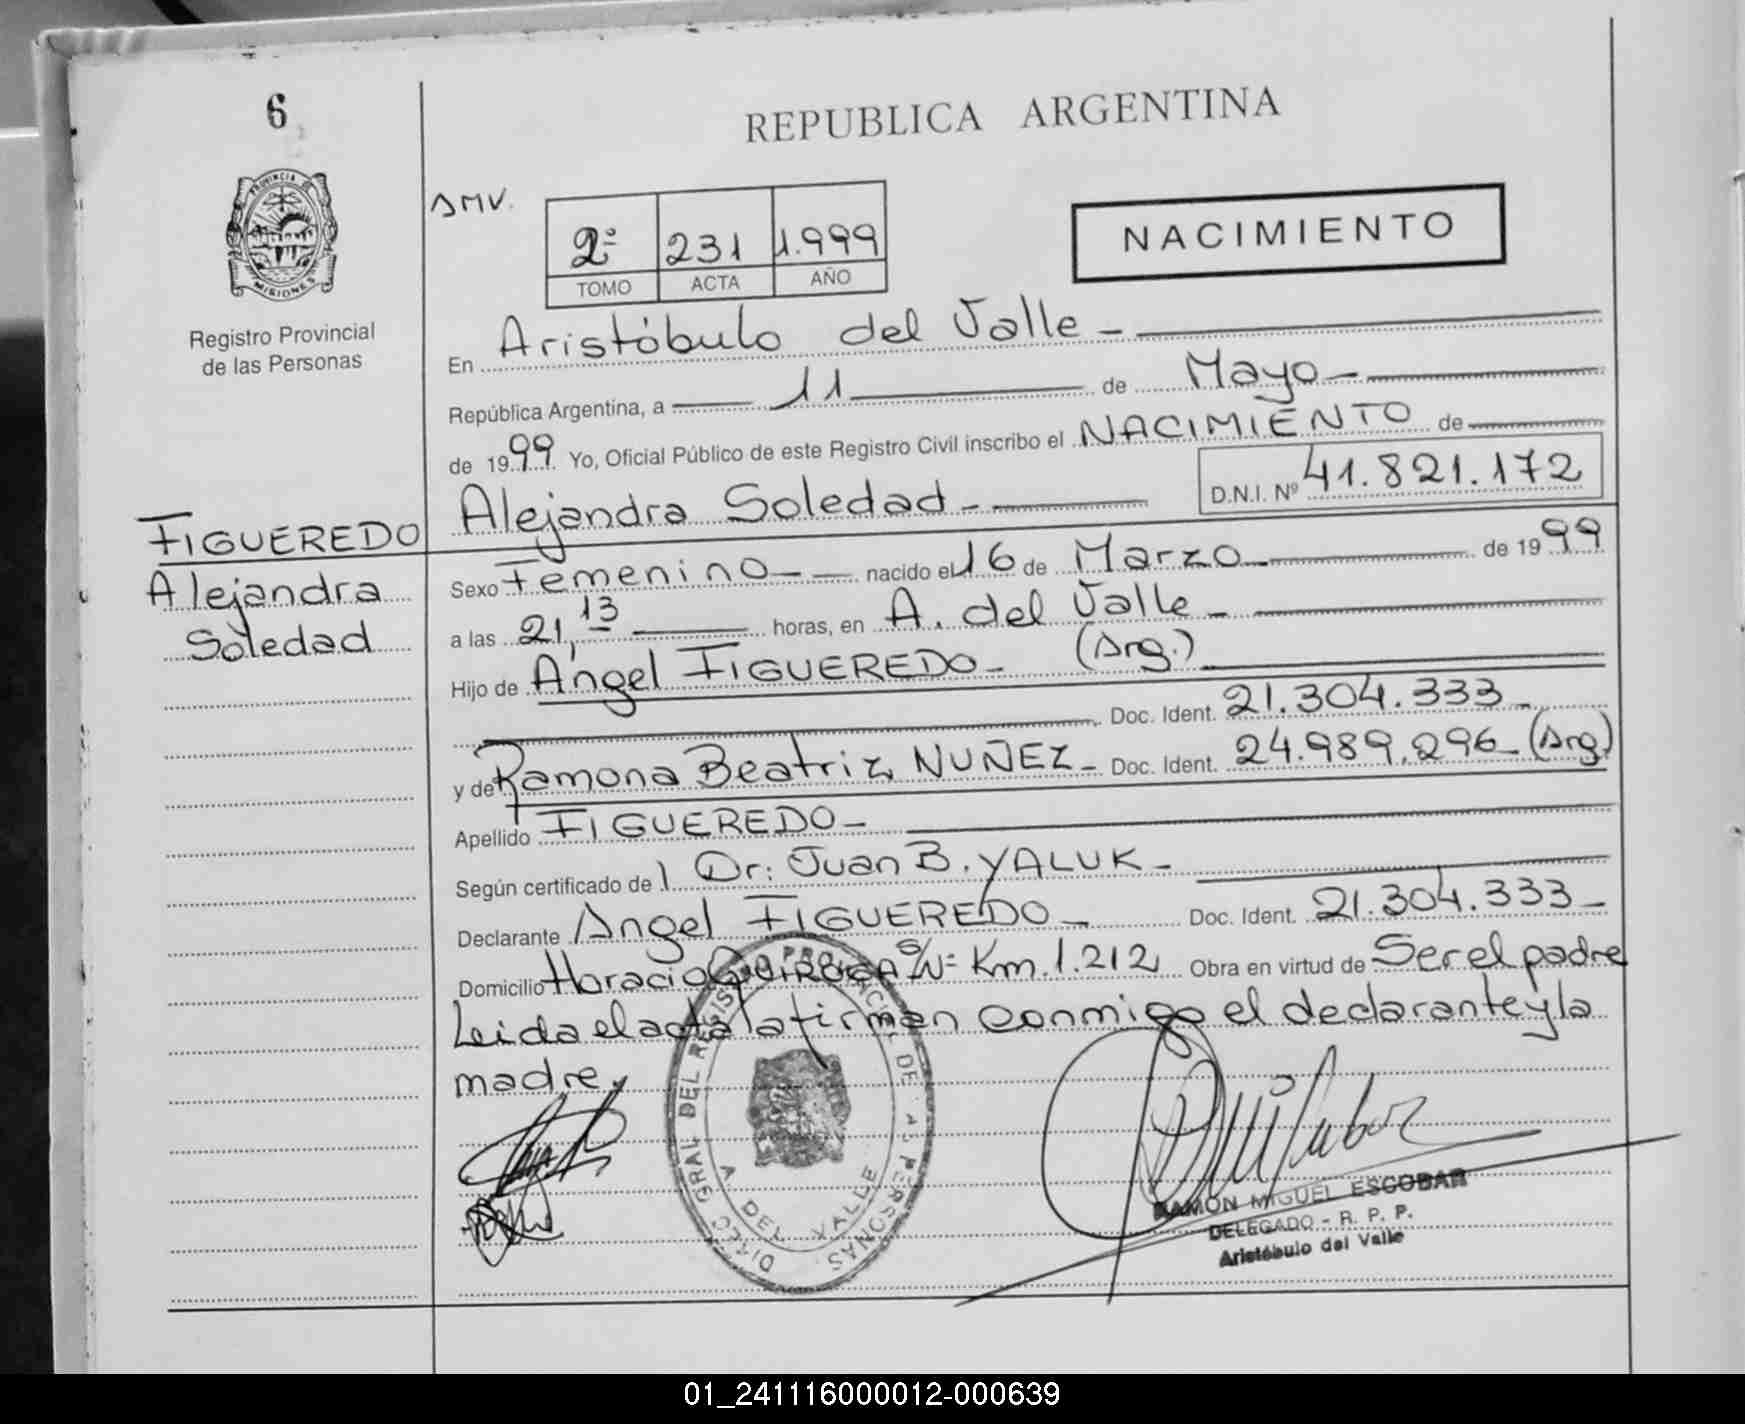 6
PROVINCIA DE
MISIONES
Registro Provincial
de las Personas
FIGUEREDO
Alejandra
Soledad
REPUBLICA ARGENTINA
AMV.
2º 231 1.999
TOMO ACTA AÑO
NACIMIENTO
En Aristóbulo del Valle -
República Argentina, a 11 de Mayo -
de 1999 Yo, Oficial Público de este Registro Civil inscribo el NACIMIENTO de
Alejandra Soledad - D.N.I. Nº 41.821.172
Sexo Femenino - nacido el 16 de Marzo - de 1999
a las 21,13 horas, en A. del Valle -
Hijo de Angel FIGUEREDO - (Arg.)
Doc. Ident. 21.304.333 -
y de Ramona Beatriz NUÑEZ - Doc. Ident. 24.989.296 - (Arg)
Apellido FIGUEREDO -
Según certificado de l Dr: Juan B. YALUK -
Declarante Angel FIGUEREDO - Doc. Ident. 21.304.333 -
Domicilio Horacio QUIROGA S/Nº Km. 1.212 Obra en virtud de Ser el padre
Leida el acta la firman conmigo el declarante y la
madre.
DIREC GRAL DEL REGISTRO PROVINCIAL DE LAS PERSONAS
A. DEL VALLE
RAMON MIGUEL ESCOBAR
DELEGADO - R. P. P.
Aristóbulo del Valle
01_241116000012-000639